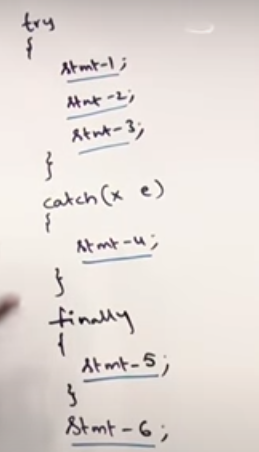 try
{
stmt-1;
stmt-2;
stmt-3;
}
catch(x e)
{
stmt-4;
}
finally
{
stmt-5;
}
stmt-6;